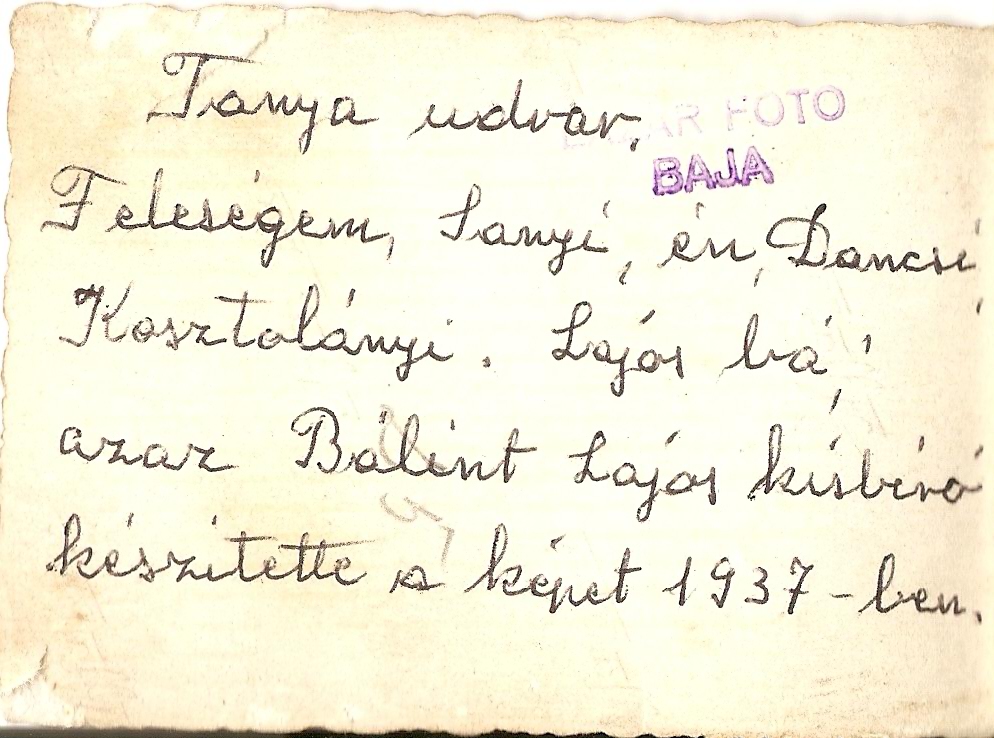 Tanya udvar.
FOTO
BAJA
Feleségem, Sanyi, én, Dancsi,
Kosztolányi. Lajos bá,
azaz Bálint Lajos kisbíró
készítette a képet 1937-ben.